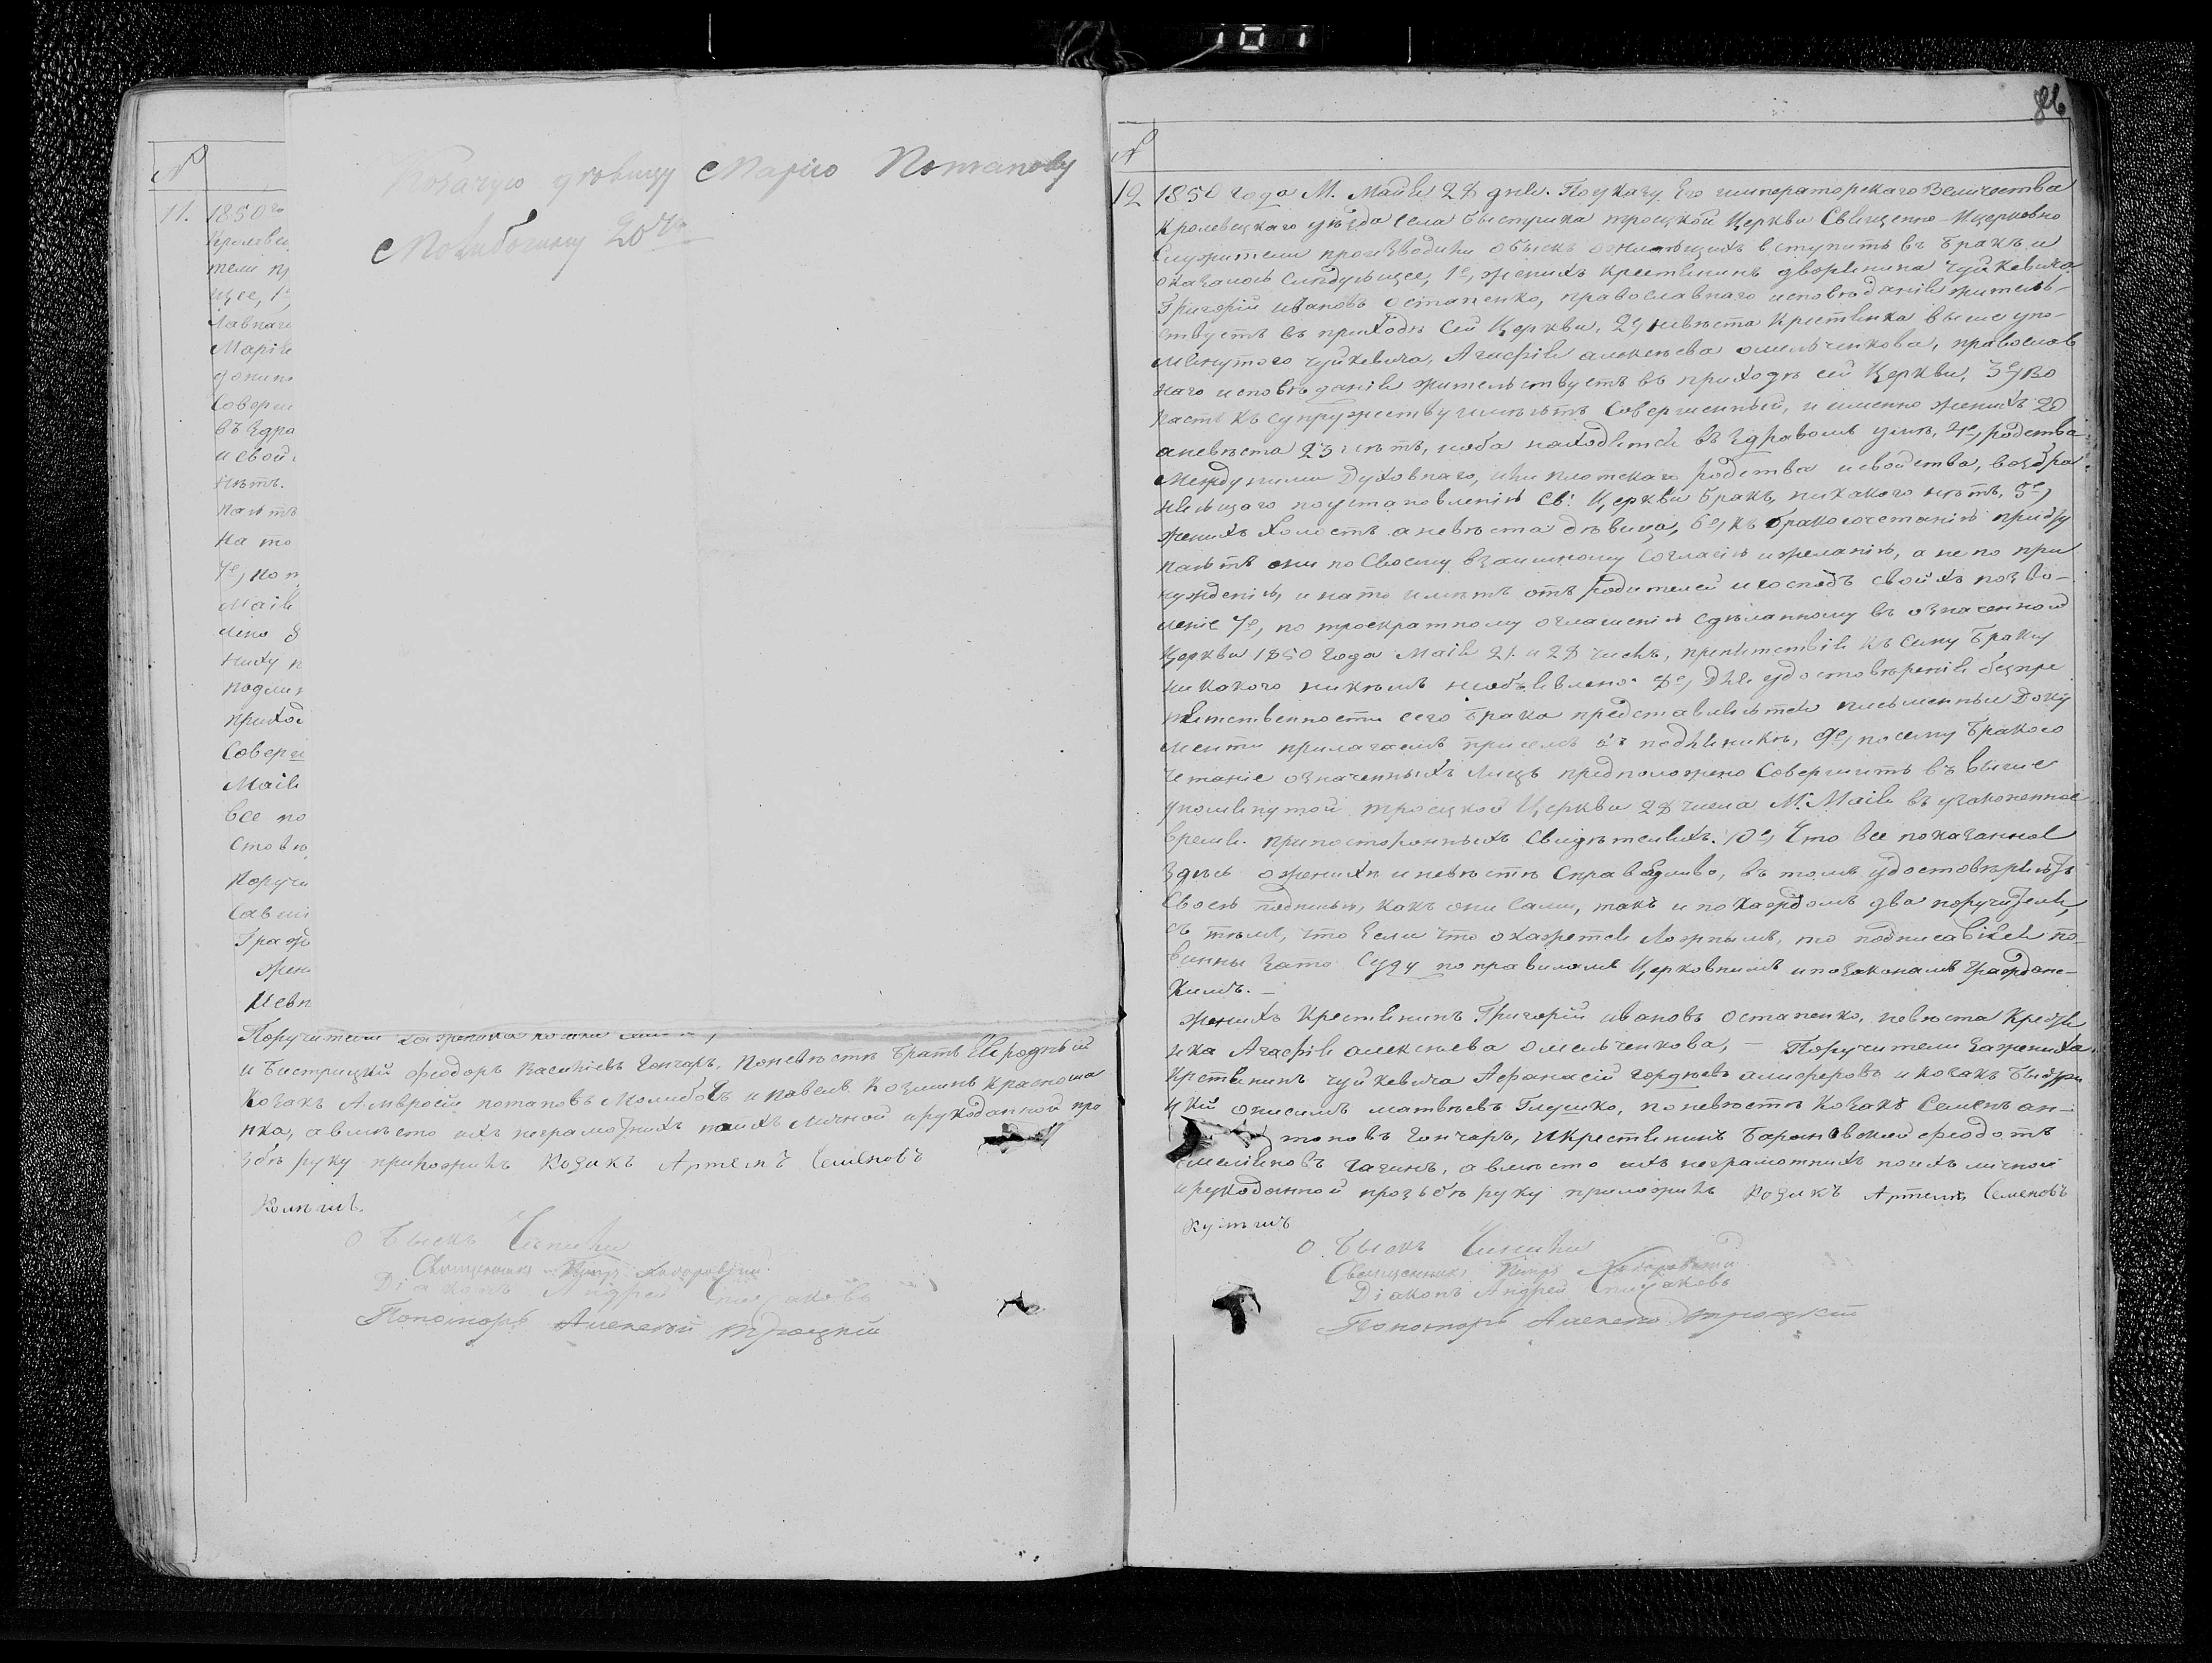 101
№
11. 1850 го
Кролевец
тели пр
щее, 1е
лавнаго
Марія
Соверш
въ здра
и свой
нѣтъ.
паютъ
на то
7е, по т
Маія
лено 8
нику п
подлин
приход
Соверш
Маія
все по
стовѣ
Поручи
Савел
Граж
жен
Невѣ
Козачую дѣвицу Марію Потапову
20
Поручители по женихѣ
и Бистрицкій Феодоръ Василіевъ Гончаръ, по невѣстѣ братъ Ея родный
Козакъ Амвросій потаповъ и павелъ Козминъ
нка, а вмѣсто ихъ неграмотныхъ по ихъ личной и рукоданной про
збѣ руку приложилъ Козакъ Артемъ Семеновъ
Обыскъ Чинили
Священникъ Петръ
Діаконъ Андрей
Пономарь Алексей Троцкій
86
№
12 1850 года М. Маія 28 дня. По указу Его императорскаго Величества
Кролевецкаго уѣзда села Быстрика троицкой Церкви Священно-И церковно
Служители производили обыскъ о желающихъ вступить въ бракъ и
оказалось слѣдующее, 1е, женихъ крестянинъ дворянина Чуйкевича
Григорій ивановъ Остапенко, православнаго исповѣданія жительствуетъ
ствуетъ въ приходѣ сей Церкви, 2е, невѣста крестянка выше упо-
мянутого чуйкевича, Агафія алексѣева омельченкова, православ
наго исповѣданія жительствуетъ въ приходѣ сей Церкви, 3е, Во
растъ къ супружеству имѣютъ Совершенный, и именно женихъ 20
а невѣста 23 лѣтъ, и оба находятся въ здравомъ умѣ, 4е, родства
Между ними Духовнаго, или плотскаго родства и свойства, возбра
няющаго по установленію Св: Церкви бракъ, никакого нѣтъ, 5е,
женихъ холостъ а невѣста дѣвица, 6е, къ бракосочетанію присту
паютъ они по Своему взаимному Согласію и желанію, а не по при
нужденію, и на то имѣютъ отъ родителей и господъ своихъ позво-
леніе 7е, по троекратному оглашенію сдѣланному въ означенной
Церкви 1850 года Маія 21. и 28 числъ, препятствія къ сему браку
никакого никѣмъ необъявлено. 8е, Для удостовѣренія безпре
пятственности сего брака представляются письменныи Доку
менти прилагаемъ при семъ въ подлинникѣ, 9е, по сему бракосо
четаніе означенныхъ лицъ предположено Совершить въ выше
упомянутой троецкой Церкви 28 числа М. Маія въ узаконенное
время. при посторонныхъ Свидѣтеляхъ. 10е, Что все показанное
здѣсь о женихѣ и невѣстѣ Справедливо, въ томъ удостовѣряютъ
Своею подписью, какъ они Сами, такъ и по каждомъ два поручителя,
съ тѣмъ, что если что окажется ложнымъ, то подписавшіеся по-
винны зато Суду по правиламъ Церковнымъ и по законамъ Граждан-
скимъ. —
женихъ Крестянинъ Григорій ивановъ Остапенко, невѣста Крестя
нка Агафія алексѣева Омельченкова, — Поручители за жениха
Крстянинъ чуйкевича Афанасій гордѣевъ алиферовъ и козакъ Быстри
цкій онисимъ матвѣевъ Глушко, по невѣстѣ Козакъ Семенъ ан-
тоновъ Гончаръ, И крестянинъ Барановской феодотъ
а вмѣсто ихъ неграмотнихъ по ихъ личной
и рукоданной прозьбѣ руку приложилъ Козакъ Артемъ Семеновъ
Обыскъ Чинили
Священникъ Петръ
Діаконъ Андрей
Пономарь Алексей Троцкій